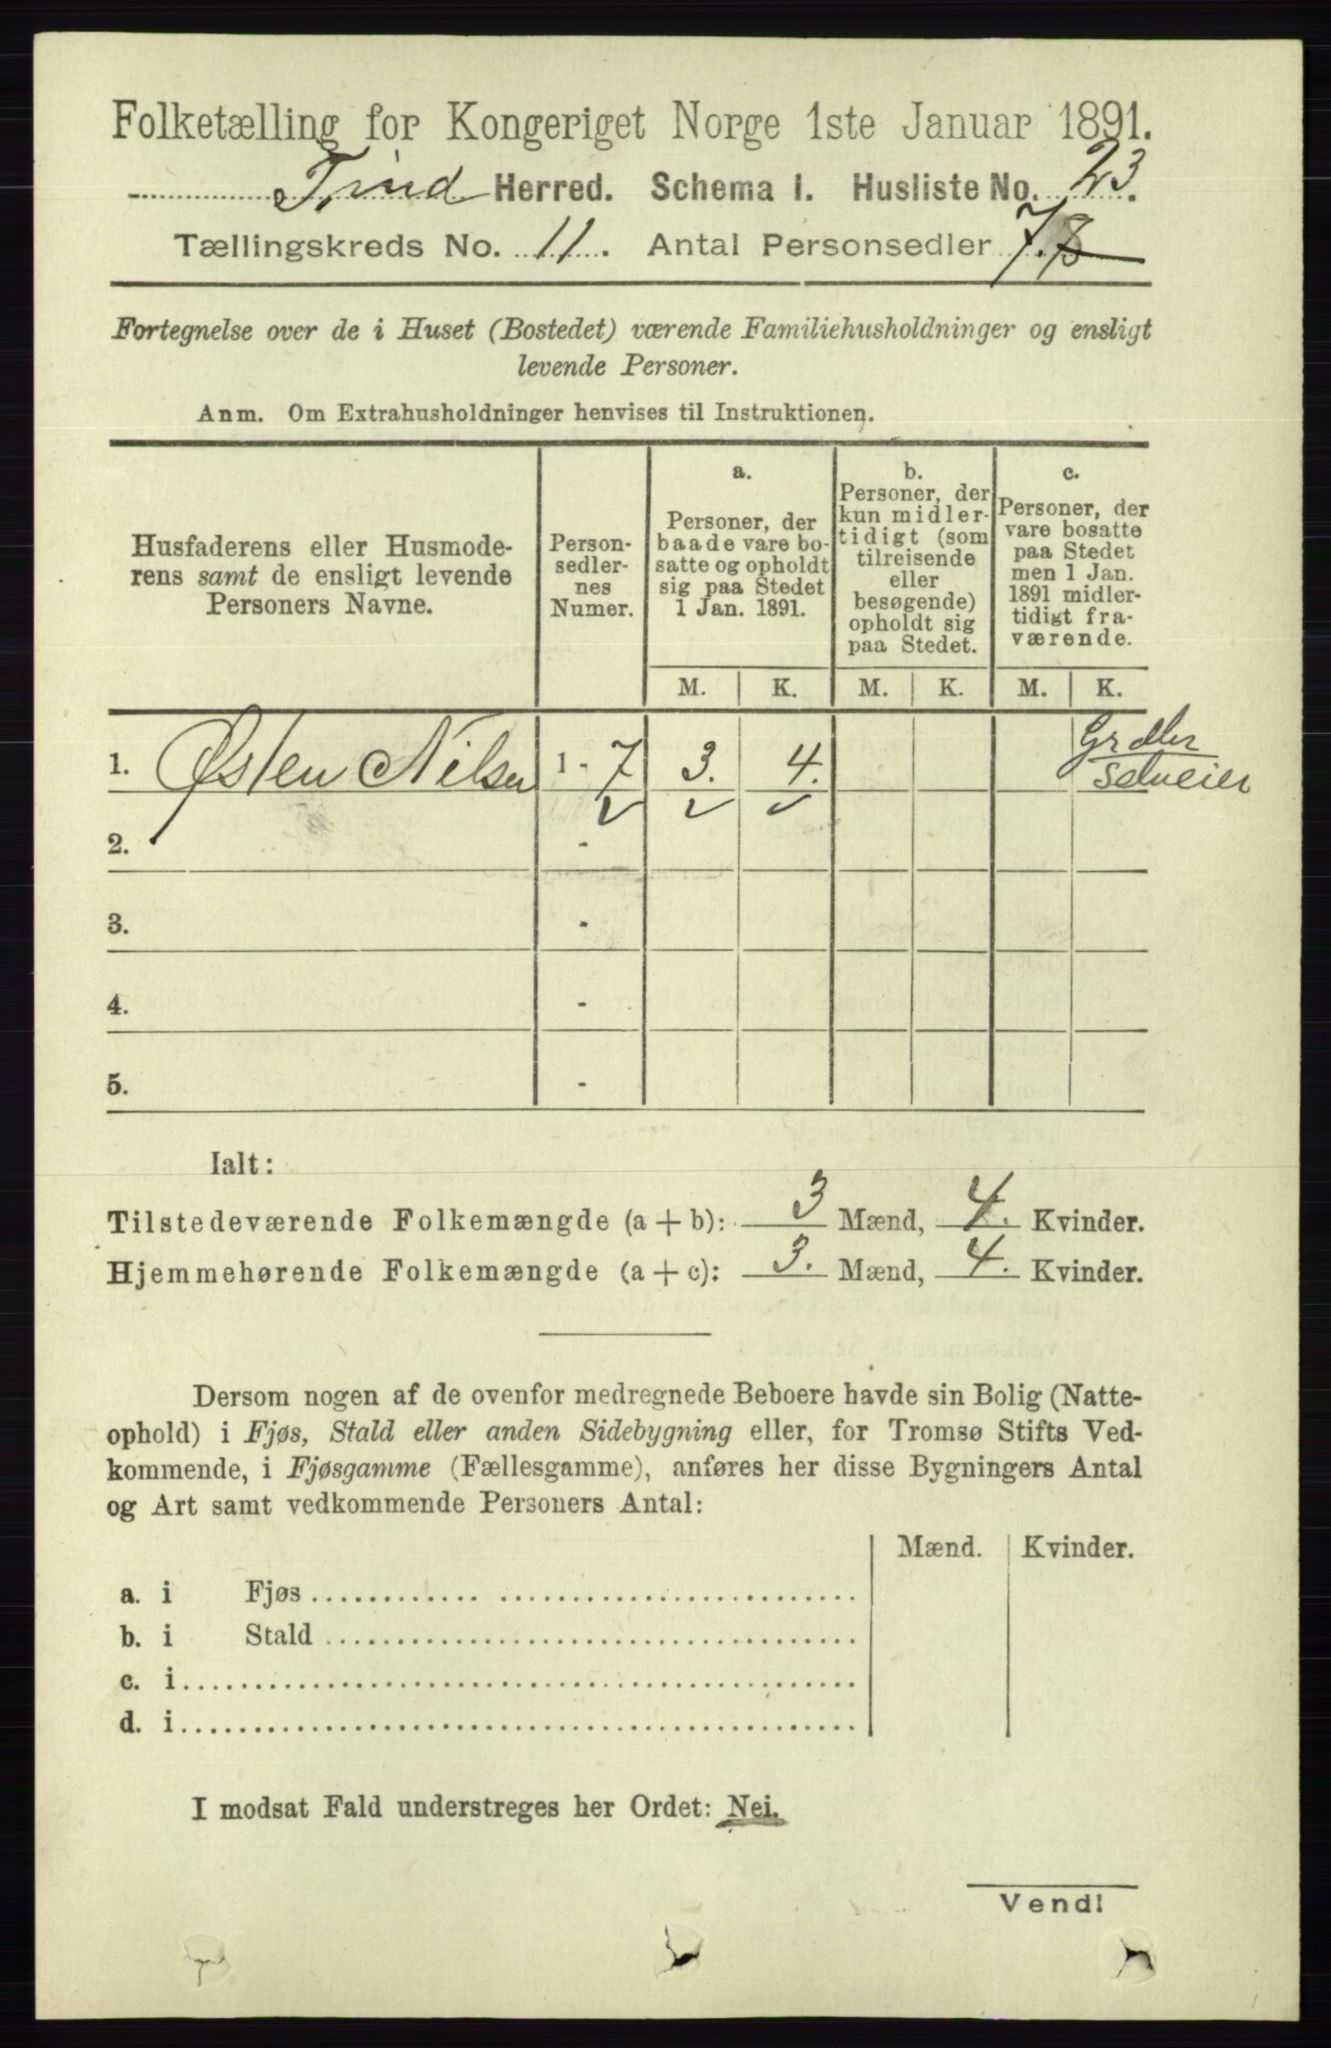 Folketælling for Kongeriget Norge 1ste Januar 1891.
Tind Herred. Schema 1. Husliste No. 23.
Tællingskreds No. 11. Antal Personsedler 7. 8
Fortegnelse over de i Huset (Bostedet) værende Familiehusholdninger og ensligt
levende Personer.
Anm. Om Extrahusholdninger henvises til Instruktionen.
Husfaderens eller Husmode-
rens samt de ensligt levende
Personers Navne.
Person-
sedler-
nes
Numer.
a.
Personer, der
baade vare bo-
satte og opholdt
sig paa Stedet
1 Jan. 1891.
b.
Personer, der
kun midler-
tidigt (som
tilreisende
eller
besøgende)
opholdt sig
paa Stedet.
c.
Personer, der
vare bosatte
paa Stedet
men 1 Jan.
1891 midler-
tidigt fra-
værende.
M. K. M. K. M. K.
1. Østen Nilsen 1 - 7 3. 4. Grdbr
selveier
2. -
3. -
4. -
5. -
Ialt:
Tilstedeværende Folkemængde (a + b): 3 Mænd, 4. Kvinder.
Hjemmehørende Folkemængde (a + c): 3. Mænd, 4. Kvinder.
Dersom nogen af de ovenfor medregnede Beboere havde sin Bolig (Natte-
ophold) i Fjøs, Stald eller anden Sidebygning eller, for Tromsø Stifts Ved-
kommende, i Fjøsgamme (Fællesgamme), anføres her disse Bygningers Antal
og Art samt vedkommende Personers Antal:
Mænd. Kvinder.
a. i Fjøs
b. i Stald
c. i
d. i
I modsat Fald understreges her Ordet: Nei.
Vend!